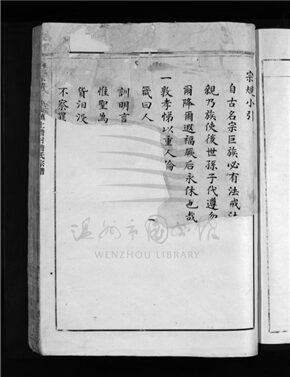 宗規小引
自古名宗巨族必有法戒
親乃族使後世孫子代遵勿
爾降爾遐福厥后永休也哉
一敦孝悌以重人倫
箴曰人
訓明言
惟聖為
貨汨沒
不察
溫州市圖書館
WENZHOU LIBRARY